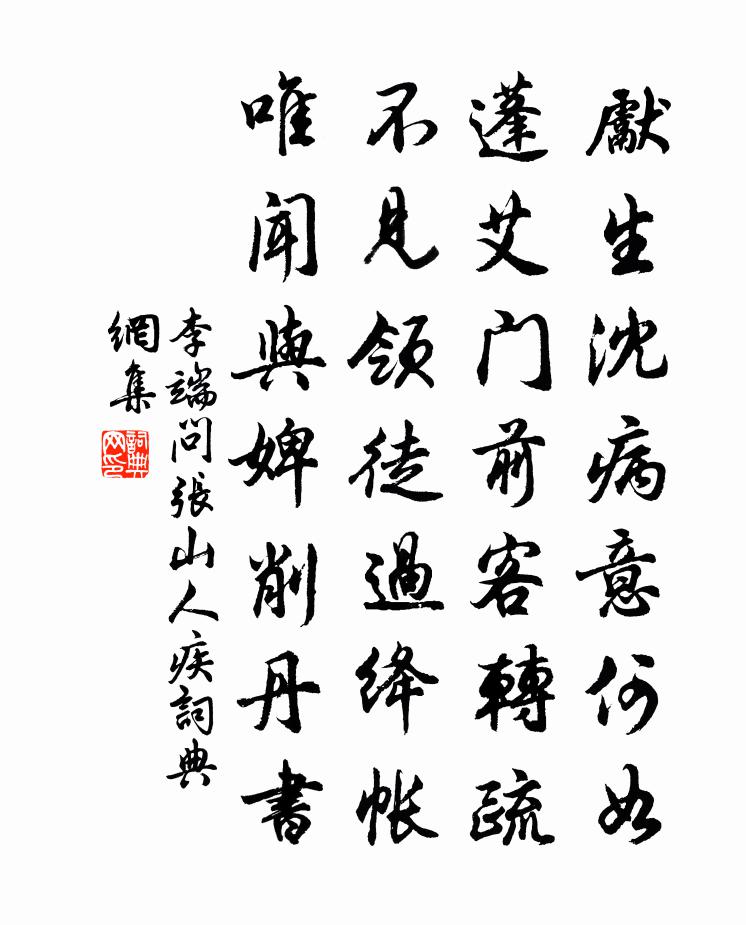 獻生沈病意何如
蓬艾門前客轉疏
不見領徒過絳帳
唯聞與婢削丹書
李端問張山人疾詞典
網集
詞典
网印